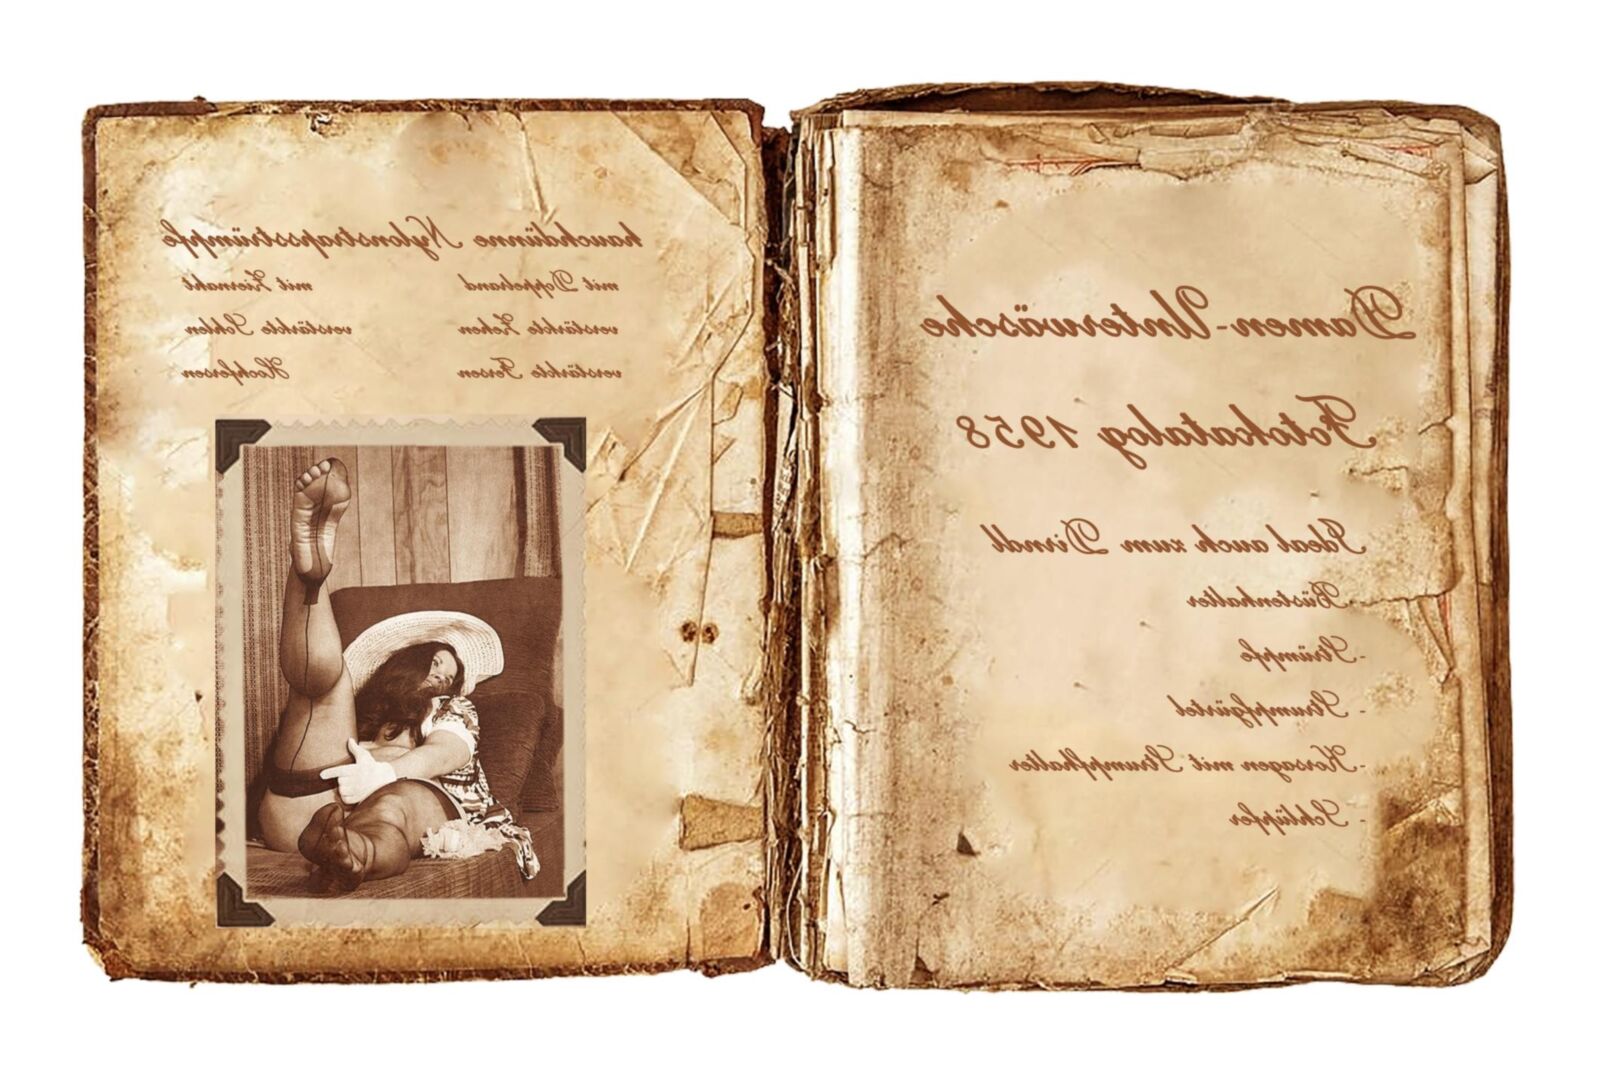 Damen-Unterwäsche
Fotokatalog 1958
Ideal auch zum Dirndl
- Büstenhalter
- Strümpfe
- Strumpfgürtel
- Korsagen mit Strumpfhalter
- Schlüpfer
hauchdünne Nylonstrapsstrümpfe
mit Doppelrand mit Ziernaht
verstärkte Zehen verstärkte Sohlen
verstärkte Fersen Hochfersen